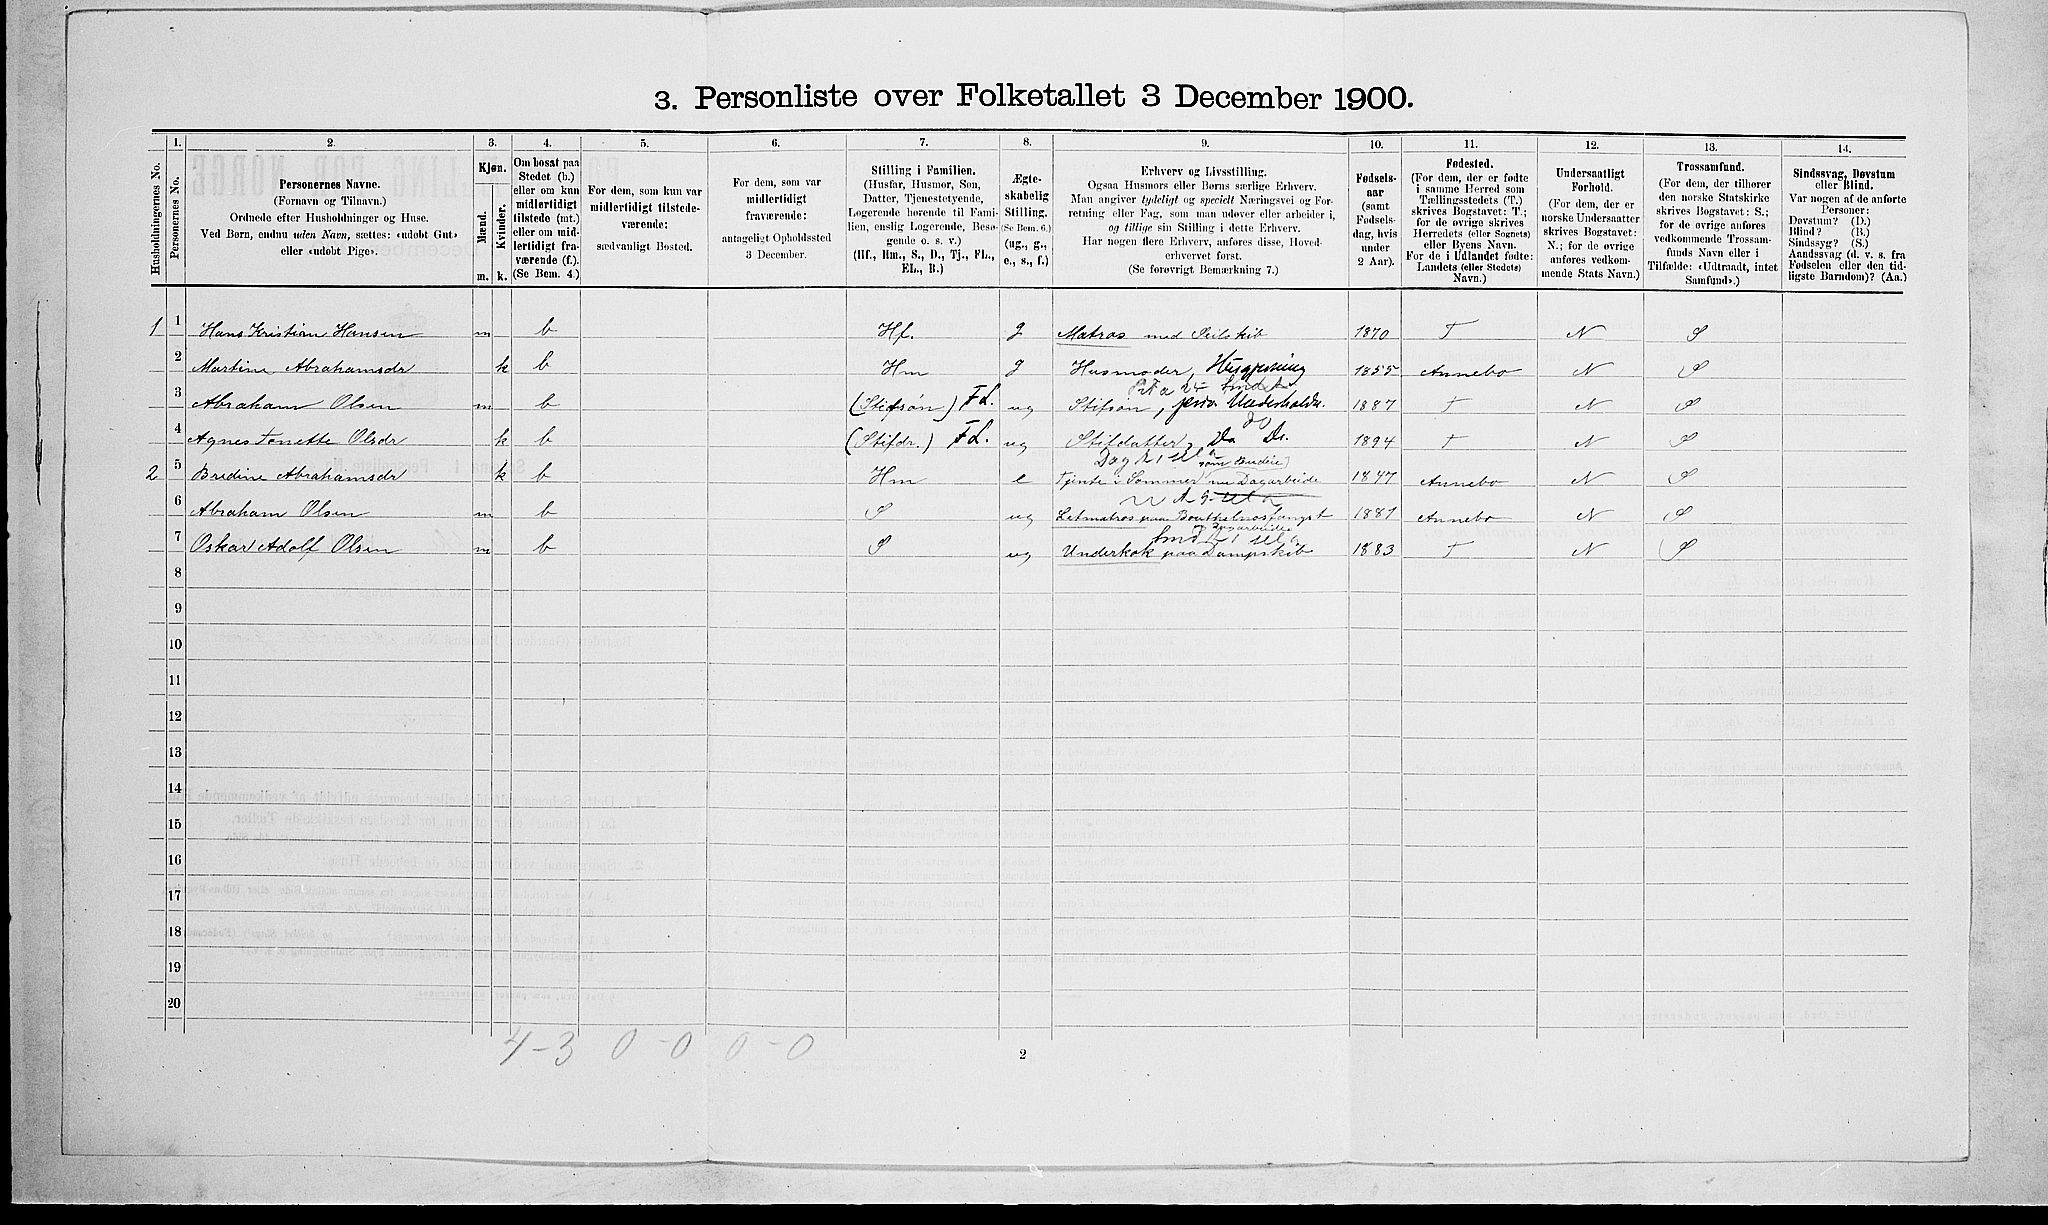 3. Personliste over Folketallet 3 December 1900.
Husholdningernes No.
1.
Personernes No.
2.
Personernes Navne.
(Fornavn og Tilnavn.)
Ordnede efter Husholdninger og Huse.
Ved Børn, endnu uden Navn, sættes: «udøbt Gut»
eller «udøbt Pige».
3.
Kjøn.
Mænd.
Kvinder.
m. k.
4.
Om bosat paa
Stedet (b.)
eller om kun
midlertidigt
tilstede (mt.)
eller om mid-
lertidigt fra-
værende (f.).
(Se Bem. 4.)
5.
For dem, som kun var
midlertidigt tilstede-
værende:
sædvanligt Bosted.
6.
For dem, som var
midlertidigt
fraværende:
antageligt Opholdssted
3 December.
7.
Stilling i Familien.
(Husfar, Husmor, Søn,
Datter, Tjenestetyende,
Logerende hørende til Fami-
lien, enslig Logerende, Besø-
gende o. s. v.)
(Hf., Hm., S., D., Tj., FL.,
EL., B.)
8.
Ægte-
skabelig
Stilling.
(Se Bem. 6.)
(ug., g.,
e., s., f.)
9.
Erhverv og Livsstilling.
Ogsaa Husmors eller Børns særlige Erhverv.
Man angiver tydeligt og specielt Næringsvei og For-
retning eller Fag, som man udøver eller arbeider i,
og tillige sin Stilling i dette Erhverv.
Har nogen flere Erhverv, anføres disse, Hoved-
erhvervet først.
(Se forøvrigt Bemærkning 7.)
10.
Fødsels-
aar
(samt
Fødsels-
dag, hvis
under
2 Aar).
11.
Fødested.
(For dem, der er fødte
i samme Herred som
Tællingsstedets (T.)
skrives Bogstavet: T.;
for de øvrige skrives
Herredets (eller Sognets)
eller Byens Navn.
For de i Udlandet fødte:
Landets (eller Stedets)
Navn.)
12.
Undersaatligt
Forhold.
(For dem, der er
norske Undersaatter
skrives Bogstavet:
N.; for de øvrige
anføres vedkom-
mende Stats Navn.)
13.
Trossamfund.
(For dem, der tilhører
den norske Statskirke
skrives Bogstavet: S.;
for de øvrige anføres
vedkommende Trossam-
funds Navn eller i
Tilfælde: «Udtraadt, intet
Samfund».)
14.
Sindssvag, Døvstum
eller Blind.
Var nogen af de anførte
Personer:
Døvstum? (D.)
Blind? (B.)
Sindssyg? (S.)
Aandssvag (d. v. s. fra
Fødselen eller den tid-
ligste Barndom)? (Aa.)
1 1 Hans Kristian Hansen m b Hf. g Matros med Seilskib 1870 T N S
2 Martine Abrahamsdr k b Hm g Husmoder, Husgjerning 1855 Annebo N S
3 Abraham Olsen m b (Stifsøn) FL. ug Stifsøn, 1887 T N S
4 Agnes Tonette Olsdr k b (Stifdr.) FL. ug Stifdatter, Do Do. 1894 T N S
som Budeie
2 5 Bredine Abrahamsdr k b Hm e Tjente i Sommer nu Dagarbeide 1847 Annebo N S
6 Abraham Olsen m b S ug Letmatros paa Bottelnosfangst 1881 Annebo N S
7 Oskar Adolf Olsen m b S ug Underkok paa Dampskib 1883 T N S
8
9
10
11
12
13
14
15
16
17
18
19
20
4-3 0-0 0-0
2